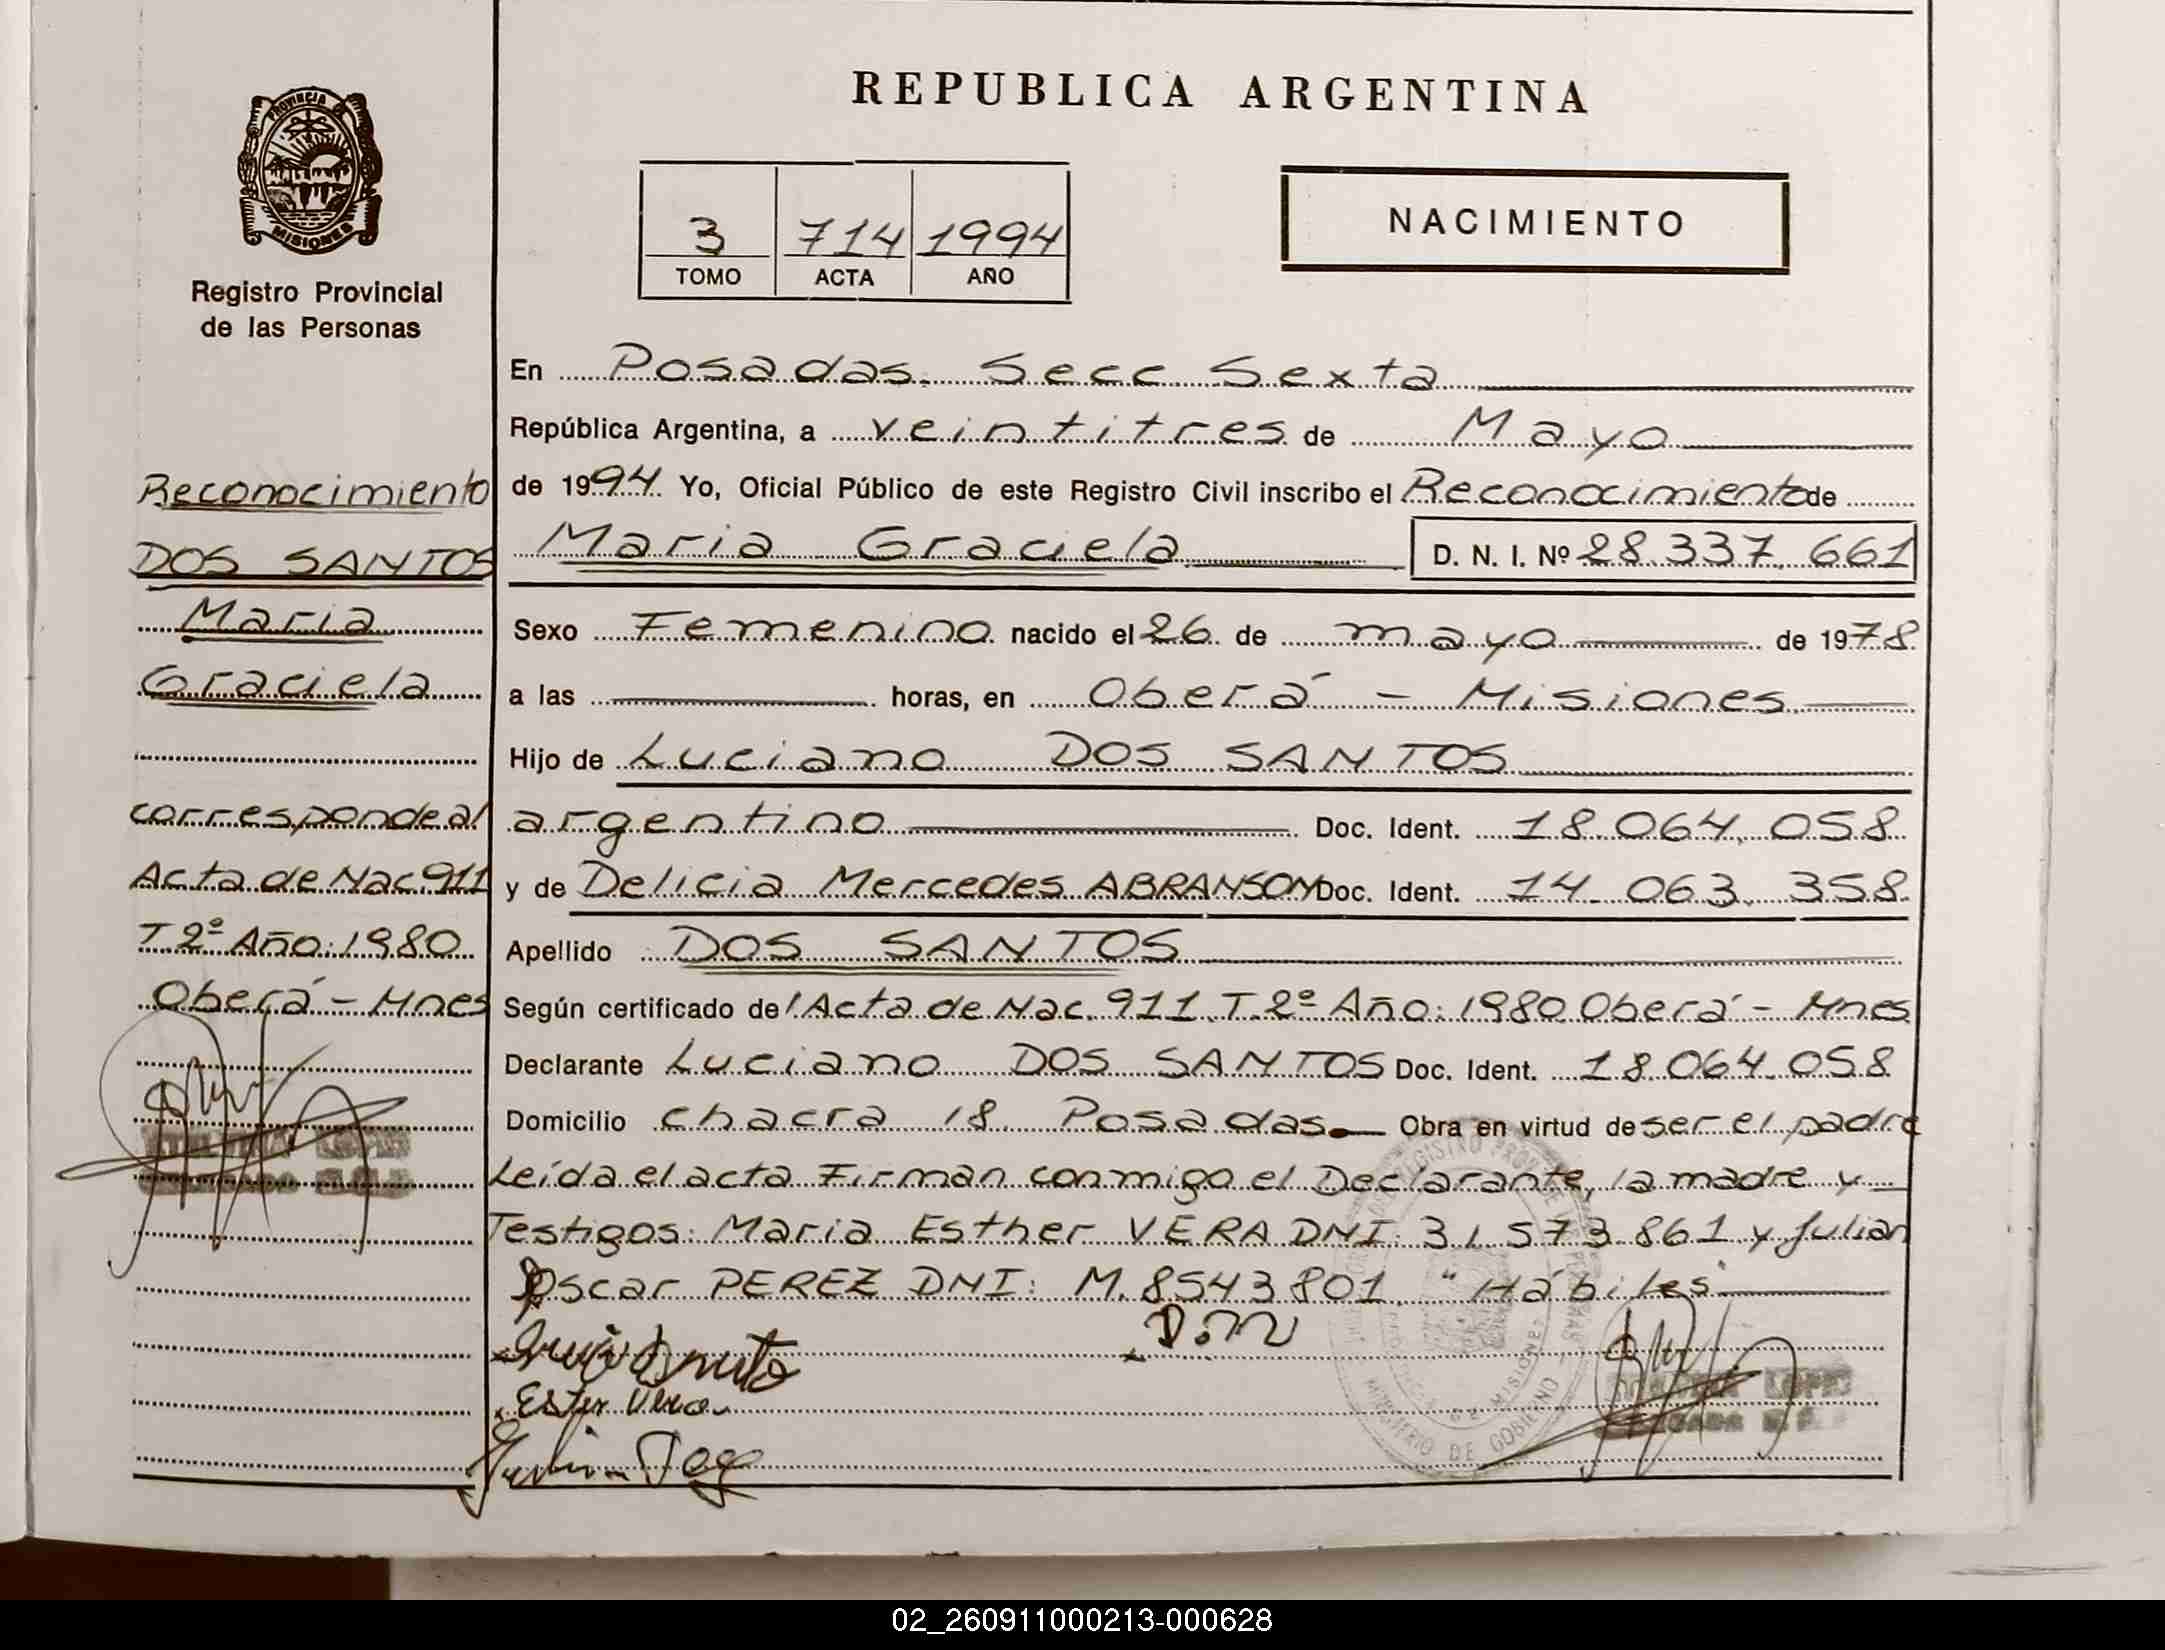 PROVINCIA DE
MISIONES
Registro Provincial
de las Personas
Reconocimiento
DOS SANTOS
Maria
Graciela
corresponde al
Acta de Nac 911
T 2º Año: 1980
Oberá - Mnes
REPUBLICA ARGENTINA
3 714 1994
TOMO ACTA AÑO
NACIMIENTO
En Posadas. Secc Sexta
República Argentina, a veintitres de Mayo
de 1994 Yo, Oficial Público de este Registro Civil inscribo el Reconocimiento de
Maria Graciela D. N. I. Nº 28.337.661
Sexo Femenino nacido el 26 de mayo de 1978
a las horas, en Oberá - Misiones
Hijo de Luciano DOS SANTOS
argentino Doc. Ident. 18.064.058
y de Delicia Mercedes ABRANSON Doc. Ident. 14.063.358
Apellido DOS SANTOS
Según certificado de l Acta de Nac. 911 T. 2º Año: 1980 Oberá - Mnes
Declarante Luciano DOS SANTOS Doc. Ident. 18.064.058
Domicilio chacra 18 Posadas. Obra en virtud de ser el padre
Leída el acta Firman conmigo el Declarante, la madre y
Testigos: Maria Esther VERA DNI: 31.573.861 y Julian
Oscar PEREZ DNI: M. 8543801. "Hábiles"
Ester Vera
MINISTERIO DE GOBIERNO
02_260911000213-000628